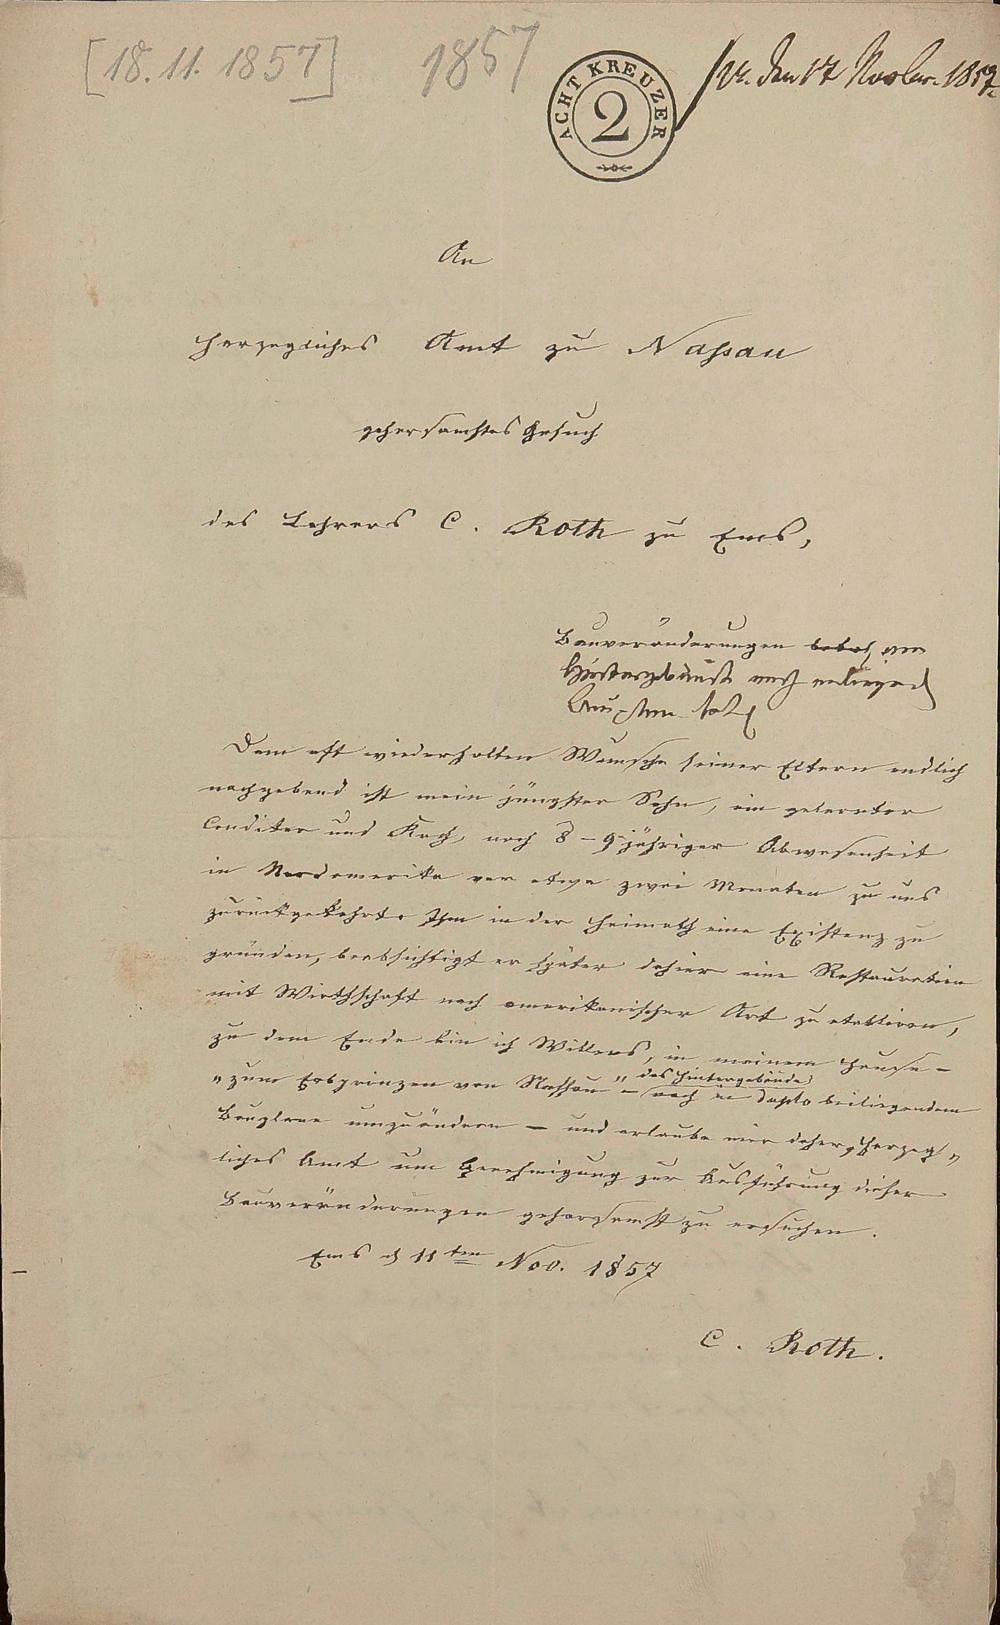 [18.11.1857] 1857
ACHT KREUZER
2
den 17 Novbr. 1857.
An
Herzogliches Amt zu Nassau
gehorsamstes Gesuch
des Lehrers C. Roth zu Ems,
Bauveränderungen betr. am
Hintergebäude nach anliegend
Dem oft wiederholten Wunsche seiner Eltern endlich
nachgebend ist mein jüngster Sohn, ein gelernter
Conditor und Koch, nach 8 – 9 jähriger Abwesenheit
in Nordamerika vor etwa zwei Monaten zu uns
zurückgekehrt. Ihm in der Heimath eine Existenz zu
gründen, beabsichtigt er später dahier eine Restauration
mit Wirthschaft nach amerikanischer Art zu etabliren,
zu dem Ende bin ich Willens, in meinem Hause –
das Hintergebäude
"zum Erbprinzen von Nassau" – nach in duplo beiliegendem
Bauplane umzuändern – und erlaube mir daher, Herzog"
liches Amt um Genehmigung zur Ausführung dieser
Bauveränderungen gehorsamst zu ersuchen.
Ems d 11ten Nov. 1857
C. Roth.